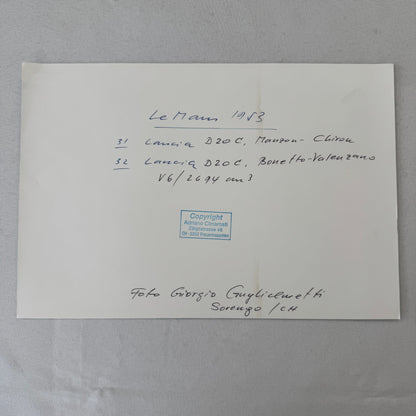 Le Mans 1953
31 Lancia D20C, Manzon-Chiron
32 Lancia D20C, Bonetto-Valenzano
V6/2694 cm3
Copyright
Adriano Cimarosti
CH-3202 Frauenkappelen
Foto Giorgio Guglielmetti
Sorengo/CH